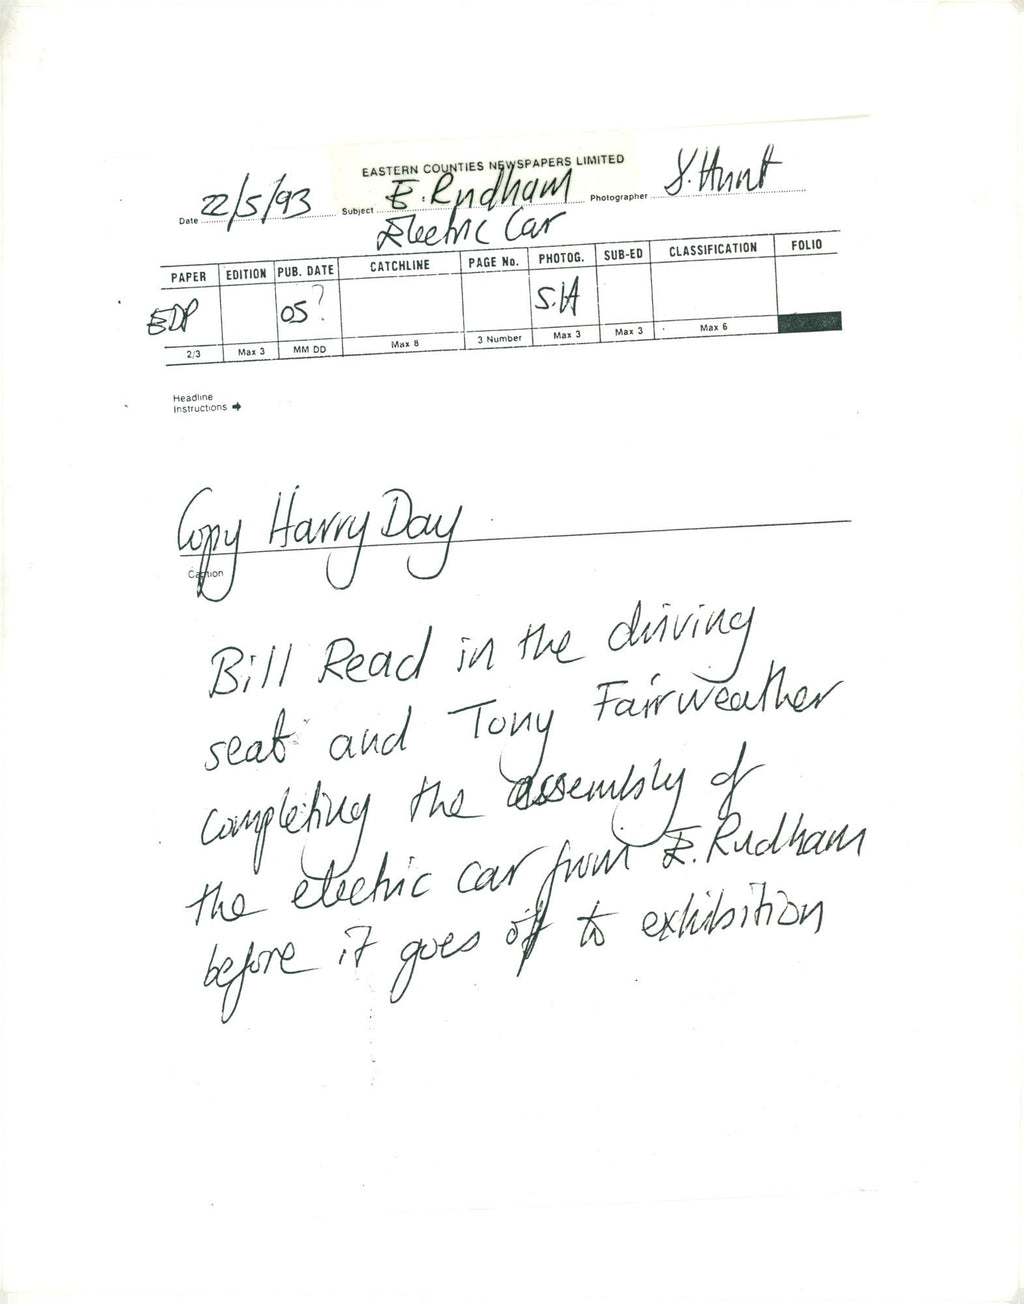 EASTERN COUNTIES NEWSPAPERS LIMITED
Date 22/5/93 Subject E. Rudham Photographer S. Hunt
Electric Car
PAPER EDITION PUB. DATE CATCHLINE PAGE No. PHOTOG. SUB-ED CLASSIFICATION FOLIO
EDP 05? S.H
2/3 Max 3 MM DD Max 8 3 Number Max 3 Max 3 Max 6
Headline
Instructions
Copy Harry Day
Caption
Bill Read in the driving
seat and Tony Fairweather
completing the assembly of
the electric car from E. Rudham
before it goes off to exhibition